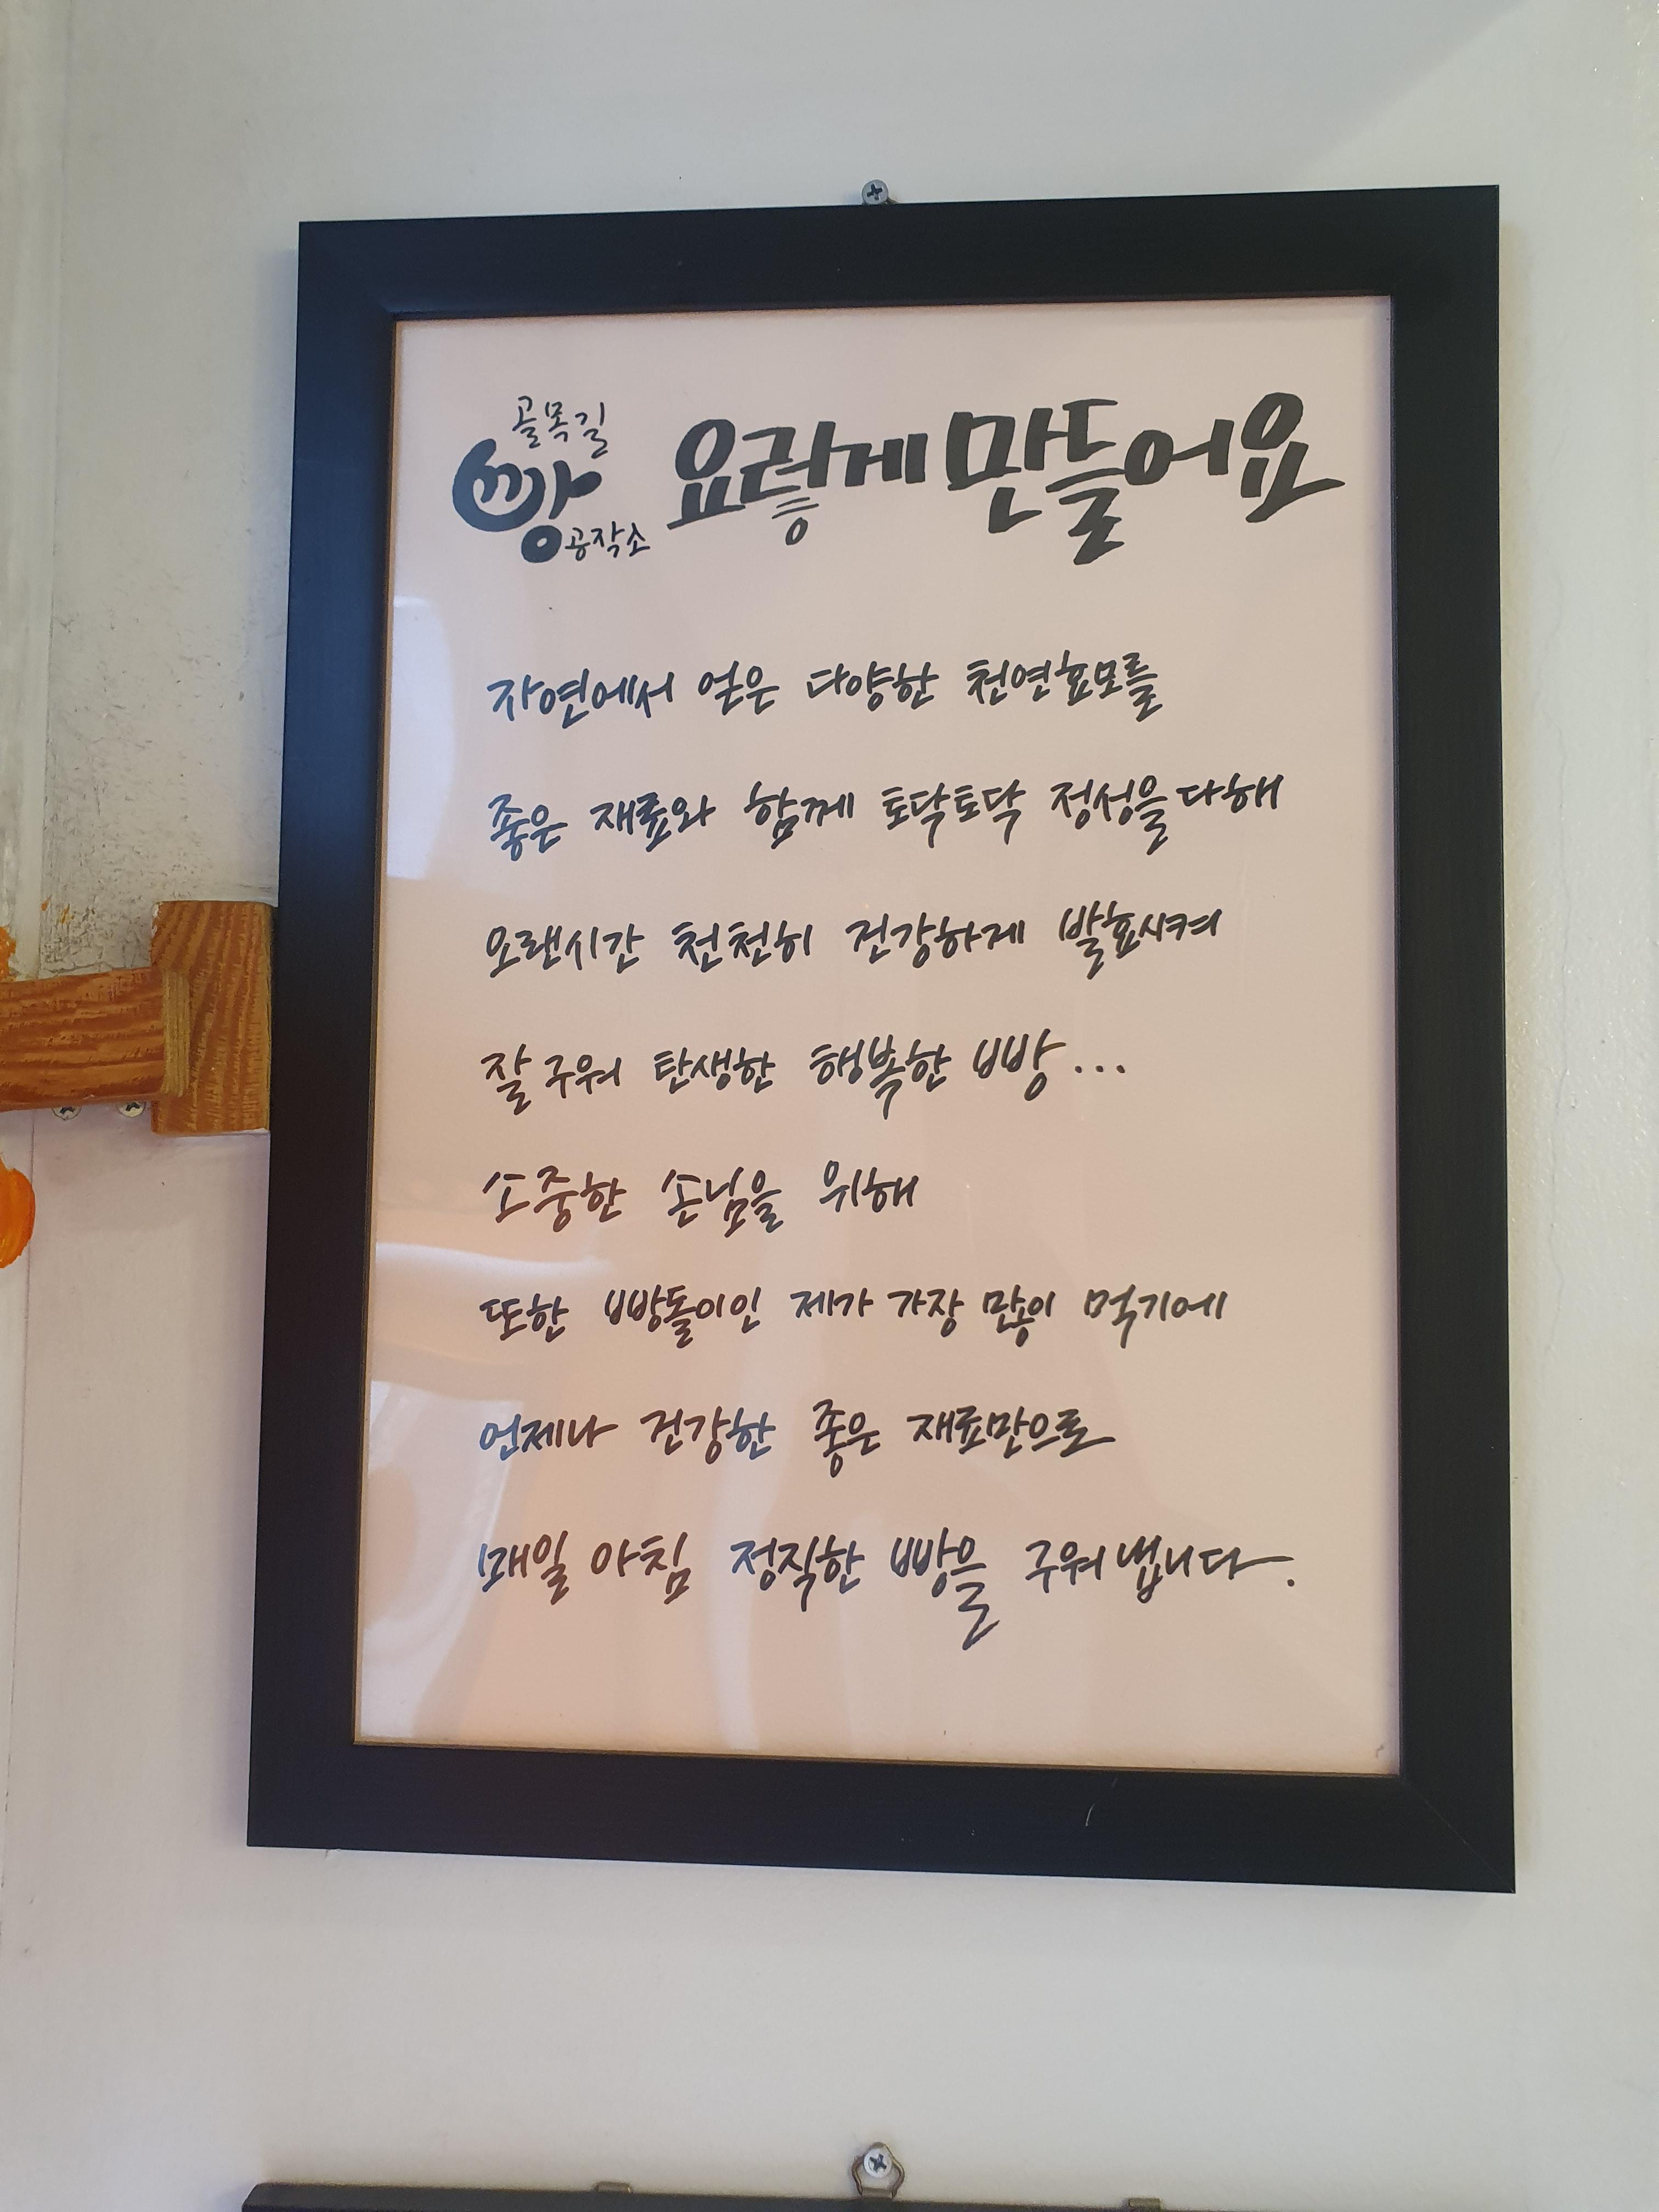 골목길
빵
공작소
요렇게 만들어요
자연에서 얻은 다양한 천연효모를
좋은 재료와 함께 토닥토닥 정성을 다해
오랜시간 천천히 건강하게 발효시켜
잘 구워 탄생한 행복한 빵...
소중한 손님을 위해
또한 빵돌이인 제가 가장 많이 먹기에
언제나 건강한 좋은 재료만으로
매일 아침 정직한 빵을 구워 냅니다.